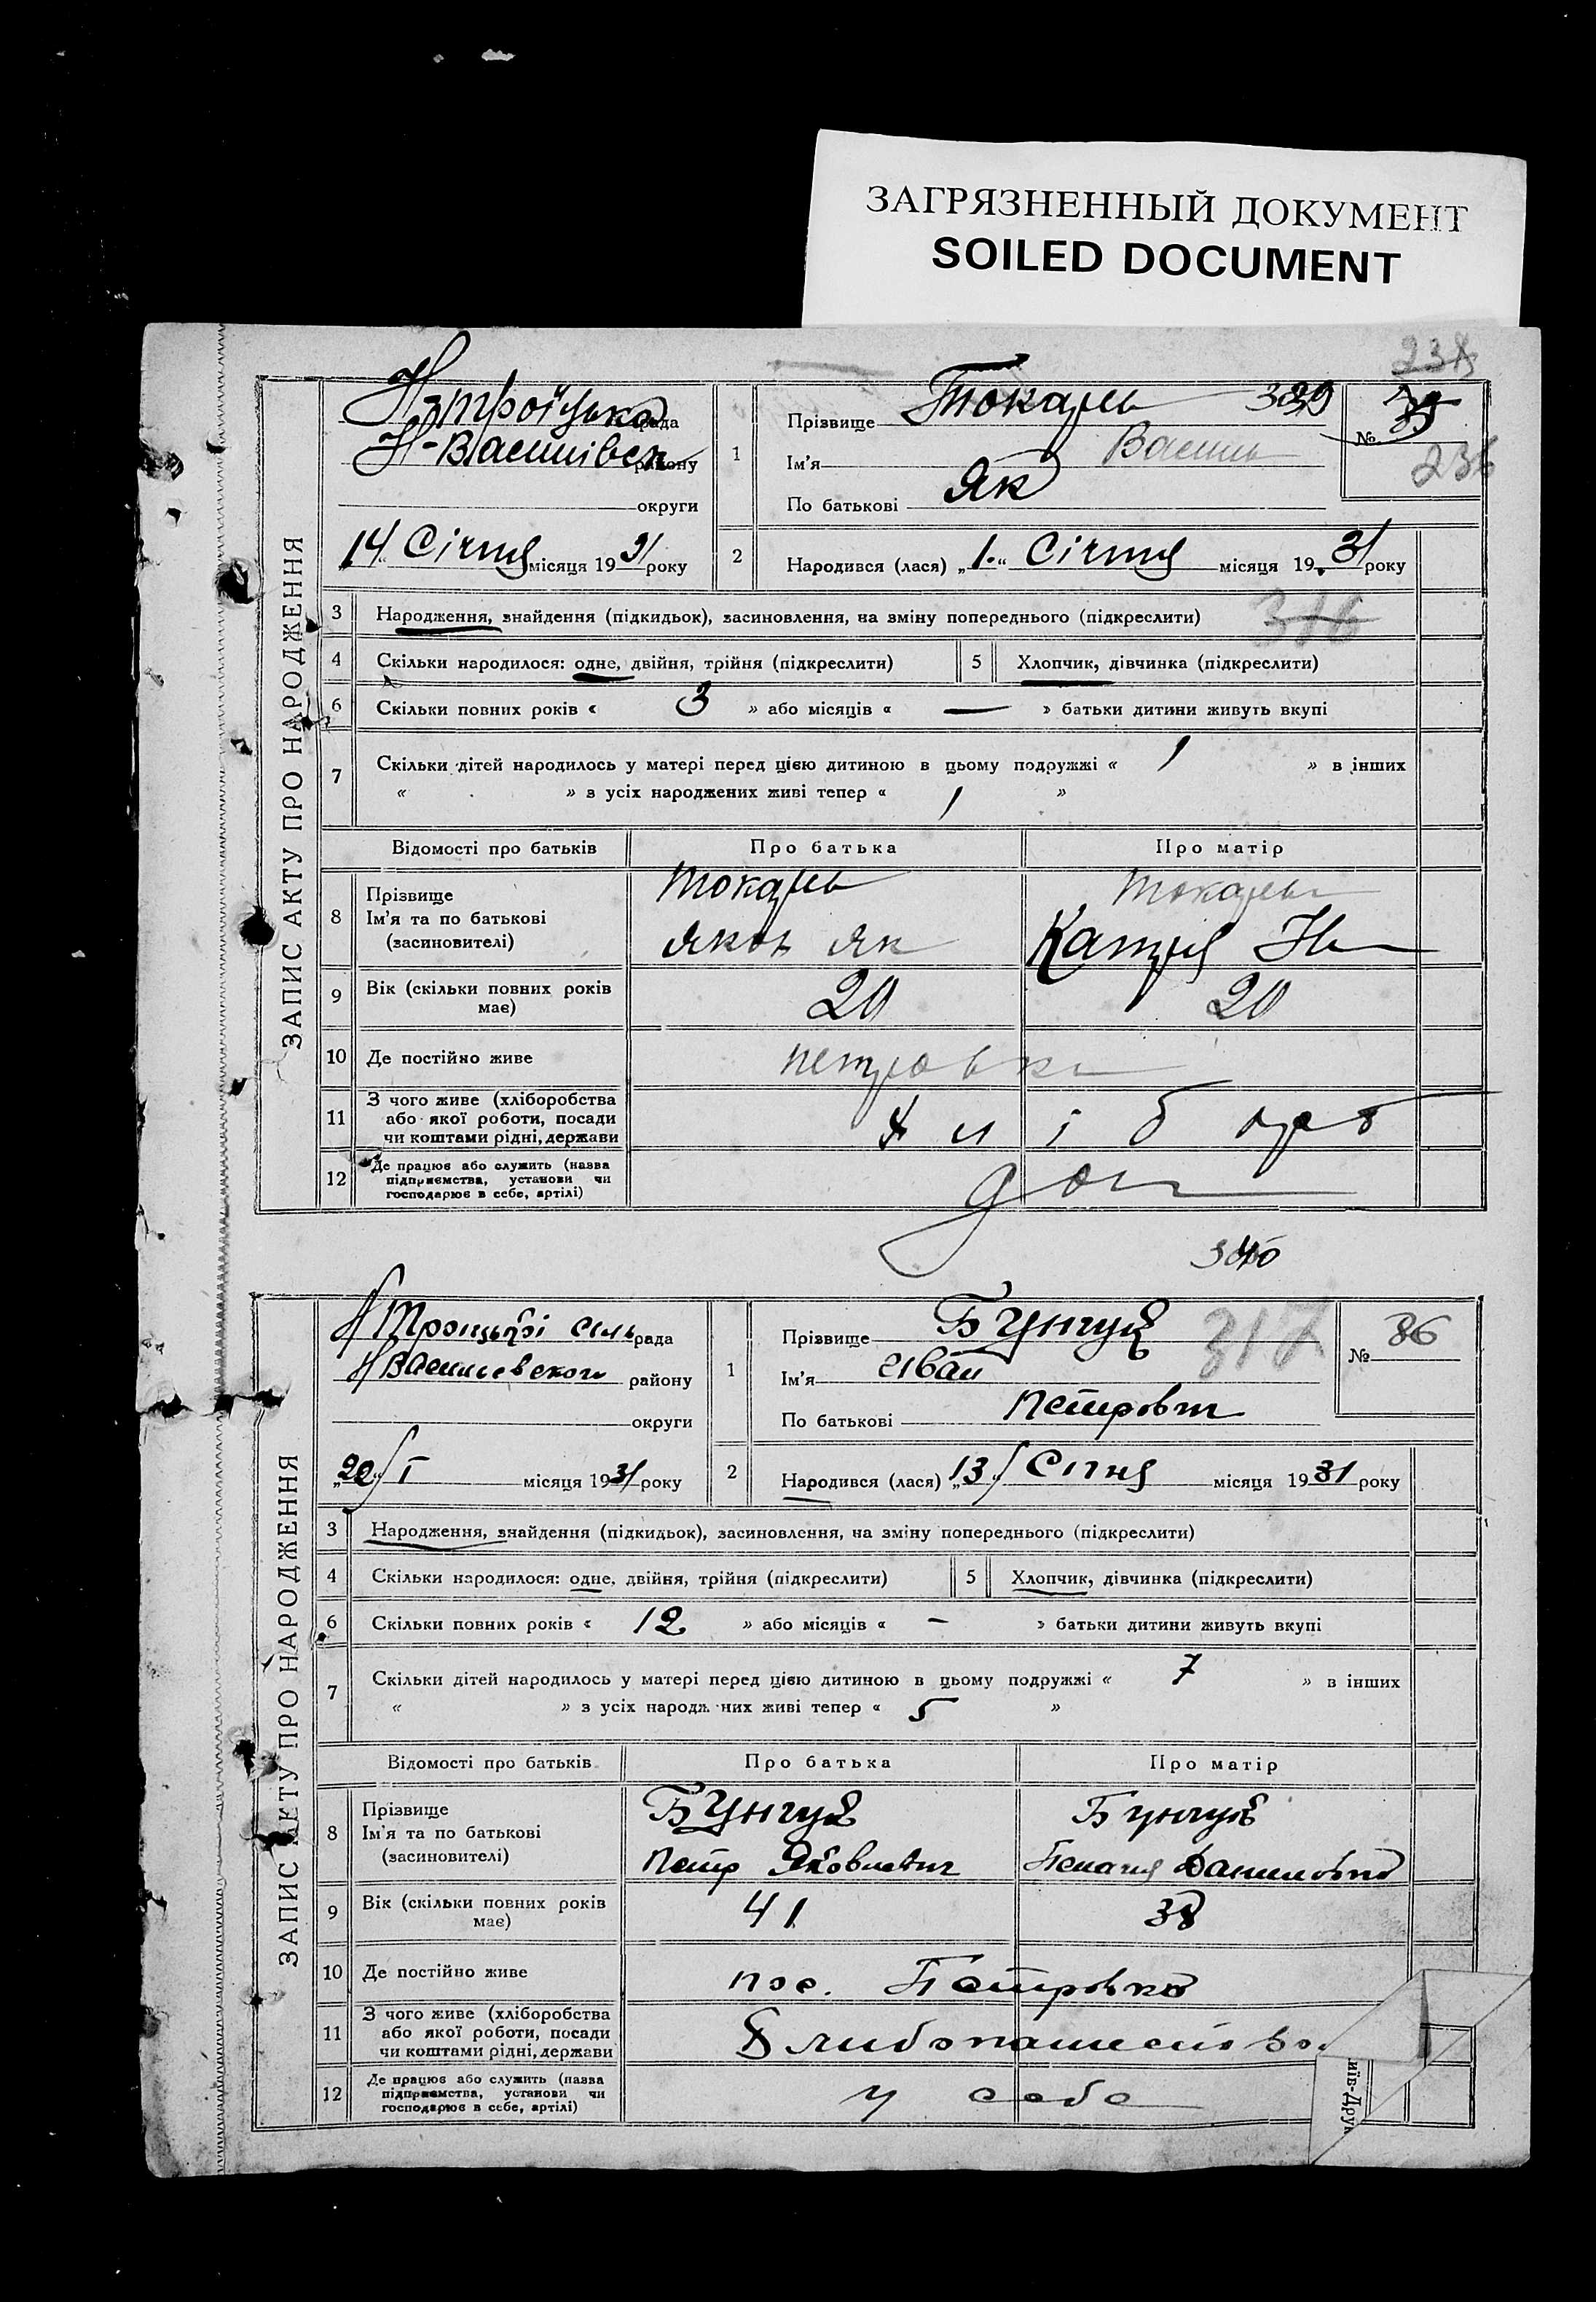 ЗАГРЯЗНЕННЫЙ ДОКУМЕНТ
SOILED DOCUMENT
ЗАПИС АКТУ ПРО НАРОДЖЕННЯ
Н-Троїцька рада
Н-Васинівськ району
округи
14 Січня місяця 1931 року
1
Прізвище Токарь 339
Ім'я Василь
По батькові Як
№
236
2
Народився (лася) „1“ Січня місяця 1931 року
3 Народження, знайдення (підкидьок), засиновлення, на зміну попереднього (підкреслити) 316
4 Скільки народилося: одне, двійня, трійня (підкреслити)
5 Хлопчик, дівчинка (підкреслити)
6 Скільки повних років « 3 » або місяців « — » батьки дитини живуть вкупі
7 Скільки дітей народилось у матері перед цією дитиною в цьому подружжі « 1 » в інших
« » з усіх народжених живі тепер « 1 »
Відомості про батьків Про батька Про матір
8 Прізвище Токарь Токарь
Ім'я та по батькові
(засновителі) Яков Як Катря
9 Вік (скільки повних років має) 20 20
10 Де постійно живе Петровка
11 З чого живе (хліборобства
або якої роботи, посади
чи коштами рідні, держави Хлібороб
12 Де працює або служить (назва
підприємства, установи чи
господарює в себе, артілі)
340
ЗАПИС АКТУ ПРО НАРОДЖЕННЯ
Н Троицької сель рада
Н Василевского району
округи
„20“ I місяця 1931 року
1
Прізвище Бунчук 317
Ім'я Иван
По батькові Петрович
№ 86
2
Народився (лася) „13“ Січня місяця 1931 року
3 Народження, знайдення (підкидьок), засиновлення, на зміну попереднього (підкреслити)
4 Скільки народилося: одне, двійня, трійня (підкреслити)
5 Хлопчик, дівчинка (підкреслити)
6 Скільки повних років « 12 » або місяців « – » батьки дитини живуть вкупі
7 Скільки дітей народилось у матері перед цією дитиною в цьому подружжі « 7 » в інших
« » з усіх народж них живі тепер « 5 »
Відомості про батьків Про батька Про матір
8 Прізвище Бунчук Бунчук
Ім'я та по батькові
(засиновителі) Петр Яковлевич Пелагия Даниловна
9 Вік (скільки повних років має) 41 38
10 Де постійно живе пос. Петровка
11 З чого живе (хліборобства
або якої роботи, посади
чи коштами рідні, держави
12 Де працює або служить (назва
підприємства, установи чи
господарює в себе, артілі) у себе